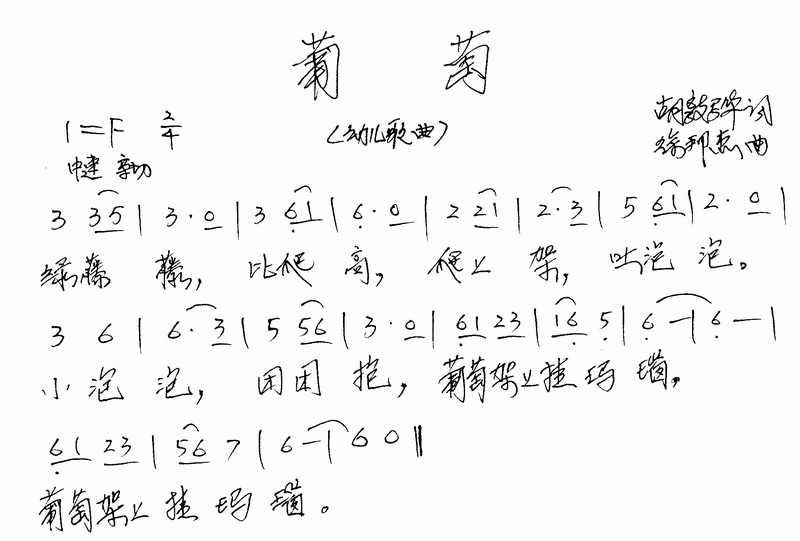 葡萄
1=F 2/4
(幼儿歌曲)
胡敦骅词
中速 亲切
徐邦杰曲
3 35 | 3· 0 | 3 61 | 6· 0 | 2 21 | 2·3 | 5 61 | 2· 0 |
绿藤藤，比爬高，爬上架，吐泡泡。
3 6 | 6·3 | 5 56 | 3·0 | 61 23 | 16 5 | 6 — | 6 — |
小泡泡，团团抱，葡萄架上挂玛瑙，
61 23 | 56 7 | 6 — | 6 0 ‖
葡萄架上挂玛瑙。